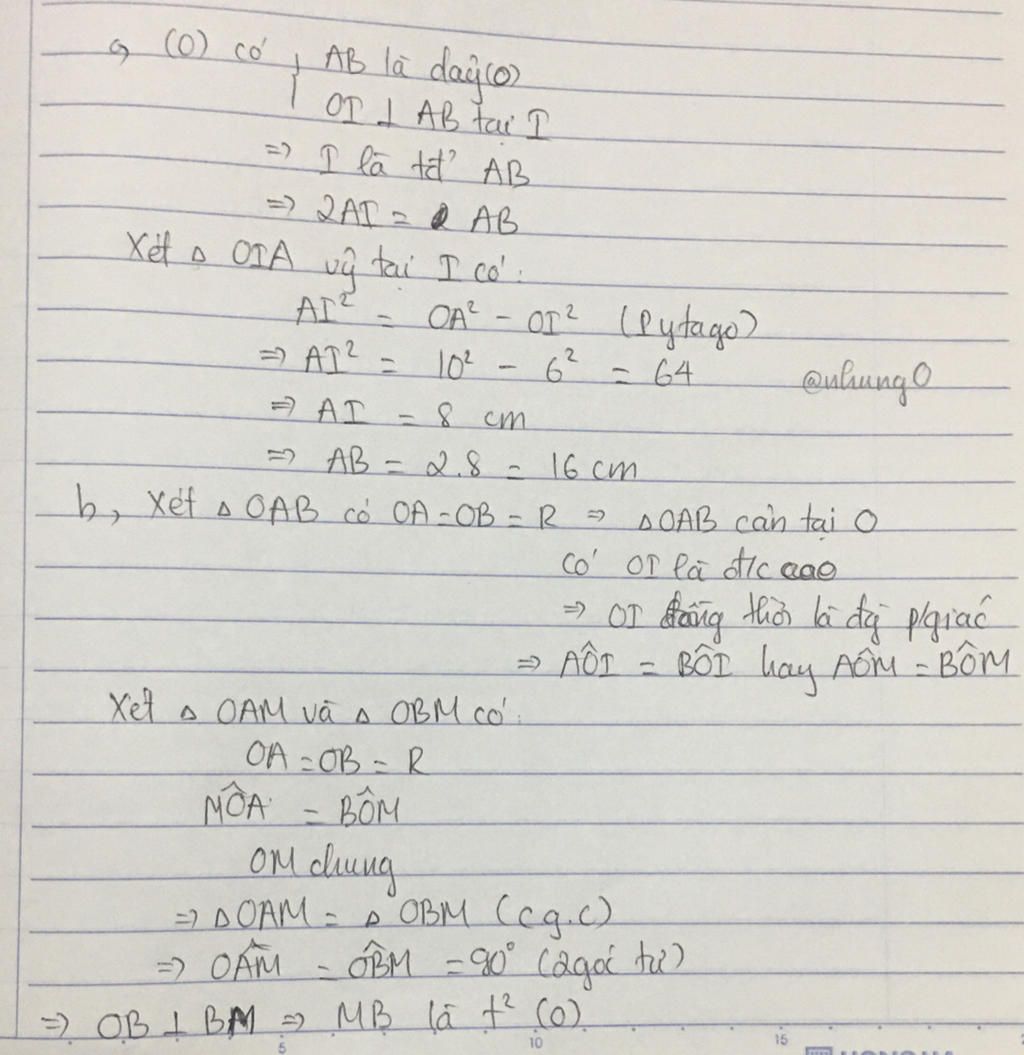 a, (O) có { AB là dây (O)
OI ⊥ AB tại I
=> I là tđ' AB
=> 2AI = AB
Xét Δ OIA vg̃ tại I có:
AI² = OA² - OI² (Pytago)
=> AI² = 10² - 6² = 64
@nhung0
=> AI = 8 cm
=> AB = 2.8 = 16 cm
b, Xét Δ OAB có OA = OB = R => ΔOAB cân tại O
có OI là đ/c cao
=> OI đồng thời là đg̃ p/giác
=> AÔI = BÔI hay AÔM = BÔM
Xét Δ OAM và Δ OBM có:
OA = OB = R
MÔA = BÔM
OM chung
=> Δ OAM = Δ OBM (c.g.c)
=> OÂM = OB̂M = 90° (2 góc tư)
=> OB ⊥ BM => MB là t² (O)
5 10 15
HONG HA